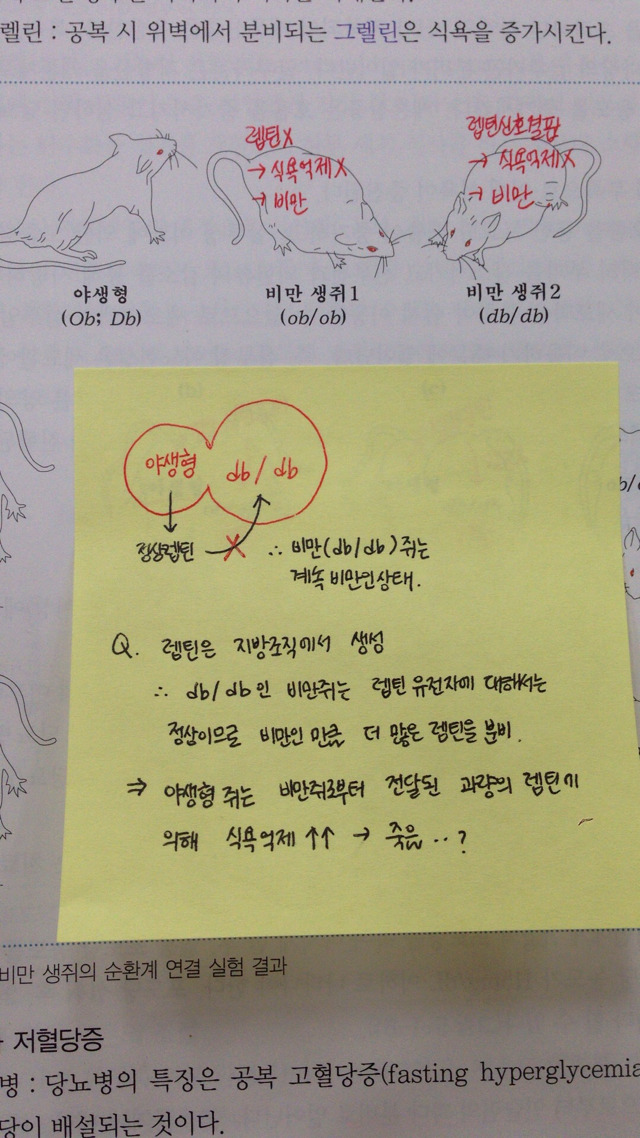 렐린 : 공복 시 위벽에서 분비되는 그렐린은 식욕을 증가시킨다.
렙틴X
→ 식욕억제X
→ 비만
렙틴신호결핍
→ 식욕억제X
→ 비만
야생형
(Ob; Db)
비만 생쥐1
(ob/ob)
비만 생쥐2
(db/db)
야생형
db / db
정상렙틴
∴ 비만(db/db)쥐는
계속 비만인상태.
Q. 렙틴은 지방조직에서 생성
∴ db/db인 비만쥐는 렙틴 유전자에 대해서는
정상이므로 비만인 만큼 더 많은 렙틴을 분비.
⇒ 야생형 쥐는 비만쥐로부터 전달된 과량의 렙틴에
의해 식욕억제 ↑↑ → 죽음..?
비만 생쥐의 순환계 연결 실험 결과
저혈당증
병 : 당뇨병의 특징은 공복 고혈당증(fasting hyperglycemia
당이 배설되는 것이다.